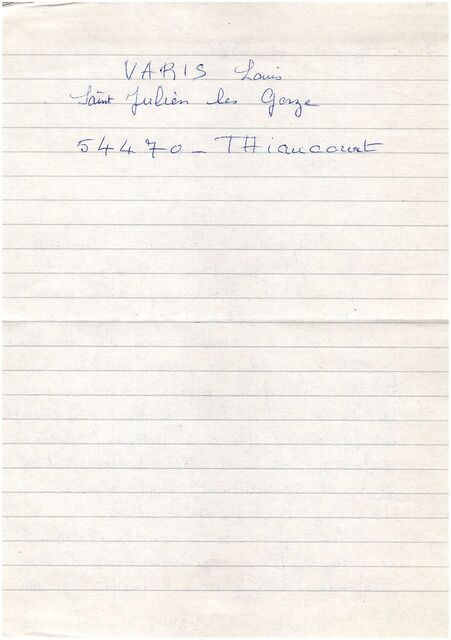 VARIS Louis
Saint Julien les Gorze
54470 - THiaucourt